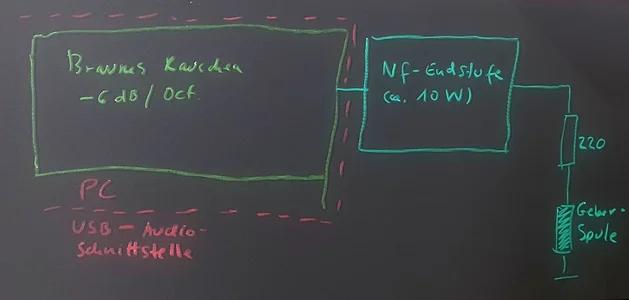 Braunes Rauschen
-6 dB / Oct.
PC
USB - Audio-
Schnittstelle
Nf-Endstufe
(ca. 10 W)
220
Geber-
Spule